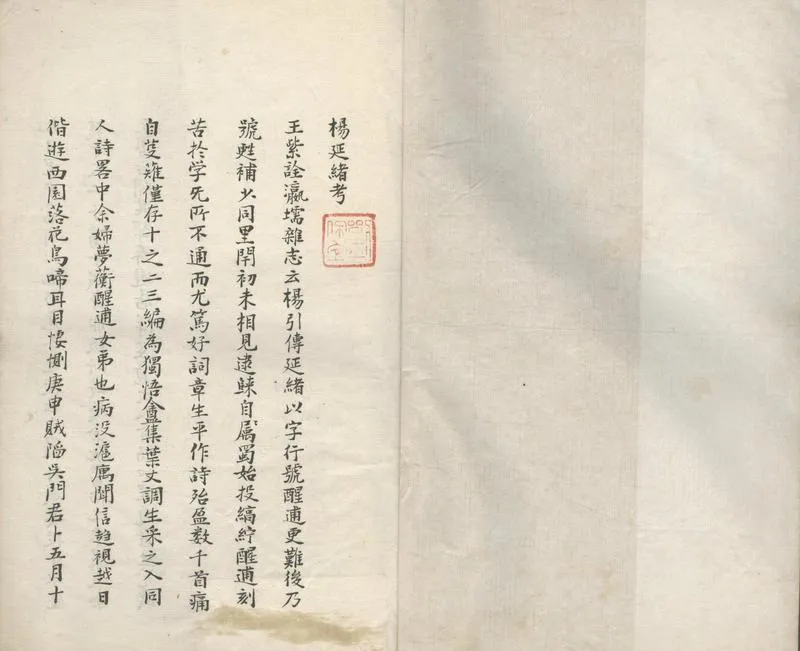 楊延緒考
王紫詮瀛壖雜志云楊引傳延緒以字行號醒逋更難後乃
號甦補少同里閈初未相見逮歸自厲蜀始投縞紵醒逋刻
苦於学旡所不通而尤篤好詞章生平作詩殆盈数千首痛
自芟薙僅存十之二三編為獨悟盦集葉丈調生采之入同
人詩畧中余婦夢蘅醒逋女弟也病没滬寓聞信趋視越日
偕遊西園落花鳥啼耳目悽惻庚申賊陷吳門君卜五月十